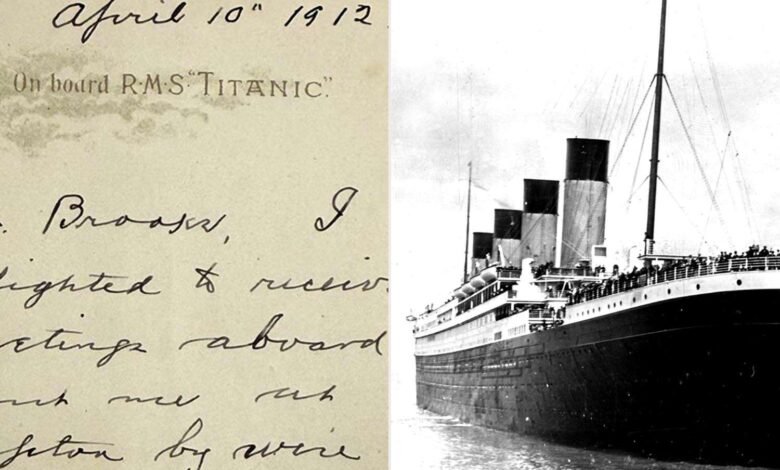 April 10" 1912
On board R·M·S·"TITANIC".
. Brooks, I
lighted to receiv
etings aboard
nt me at
pton by wire